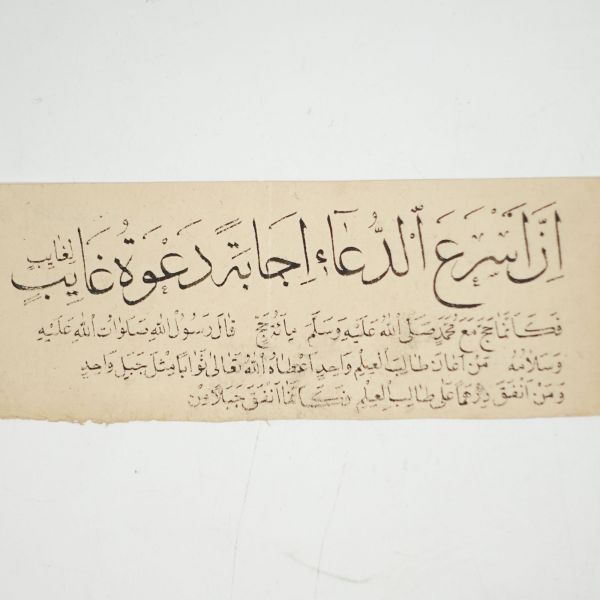 اِنَّ اَسْرَعَ الدُّعَاءِ اِجَابَةً دَعْوَةُ غَايِبٍ لِغَايِبٍ
فَكَاَنَّمَا حَجَّ مَعَ مُحَمَّدٍ صَلَّى اللهُ عَلَيْهِ وَسَلَّمَ مِأَتَه حَجٍّ قَالَ رَسُوْلُ اللهِ صَلَوٰاتُ اللهِ عَلَيْهِ
وَسَلاٰمُهُ مَنْ اَعَانَ طَالِبَ الْعِلْمِ وَاحِدٍ اَعْطَاهُ اللهُ تَعَالٰى ثَوَابًا مِثْلَ جَبَلٍ وَاحِدٍ
وَمَنْ اَنْفَقَ دِرْهَمًا عَلٰى طَالِبِ الْعِلْمِ فَكَاَنَّمَا اَنْفَقَ جَبَلًا مِنْ